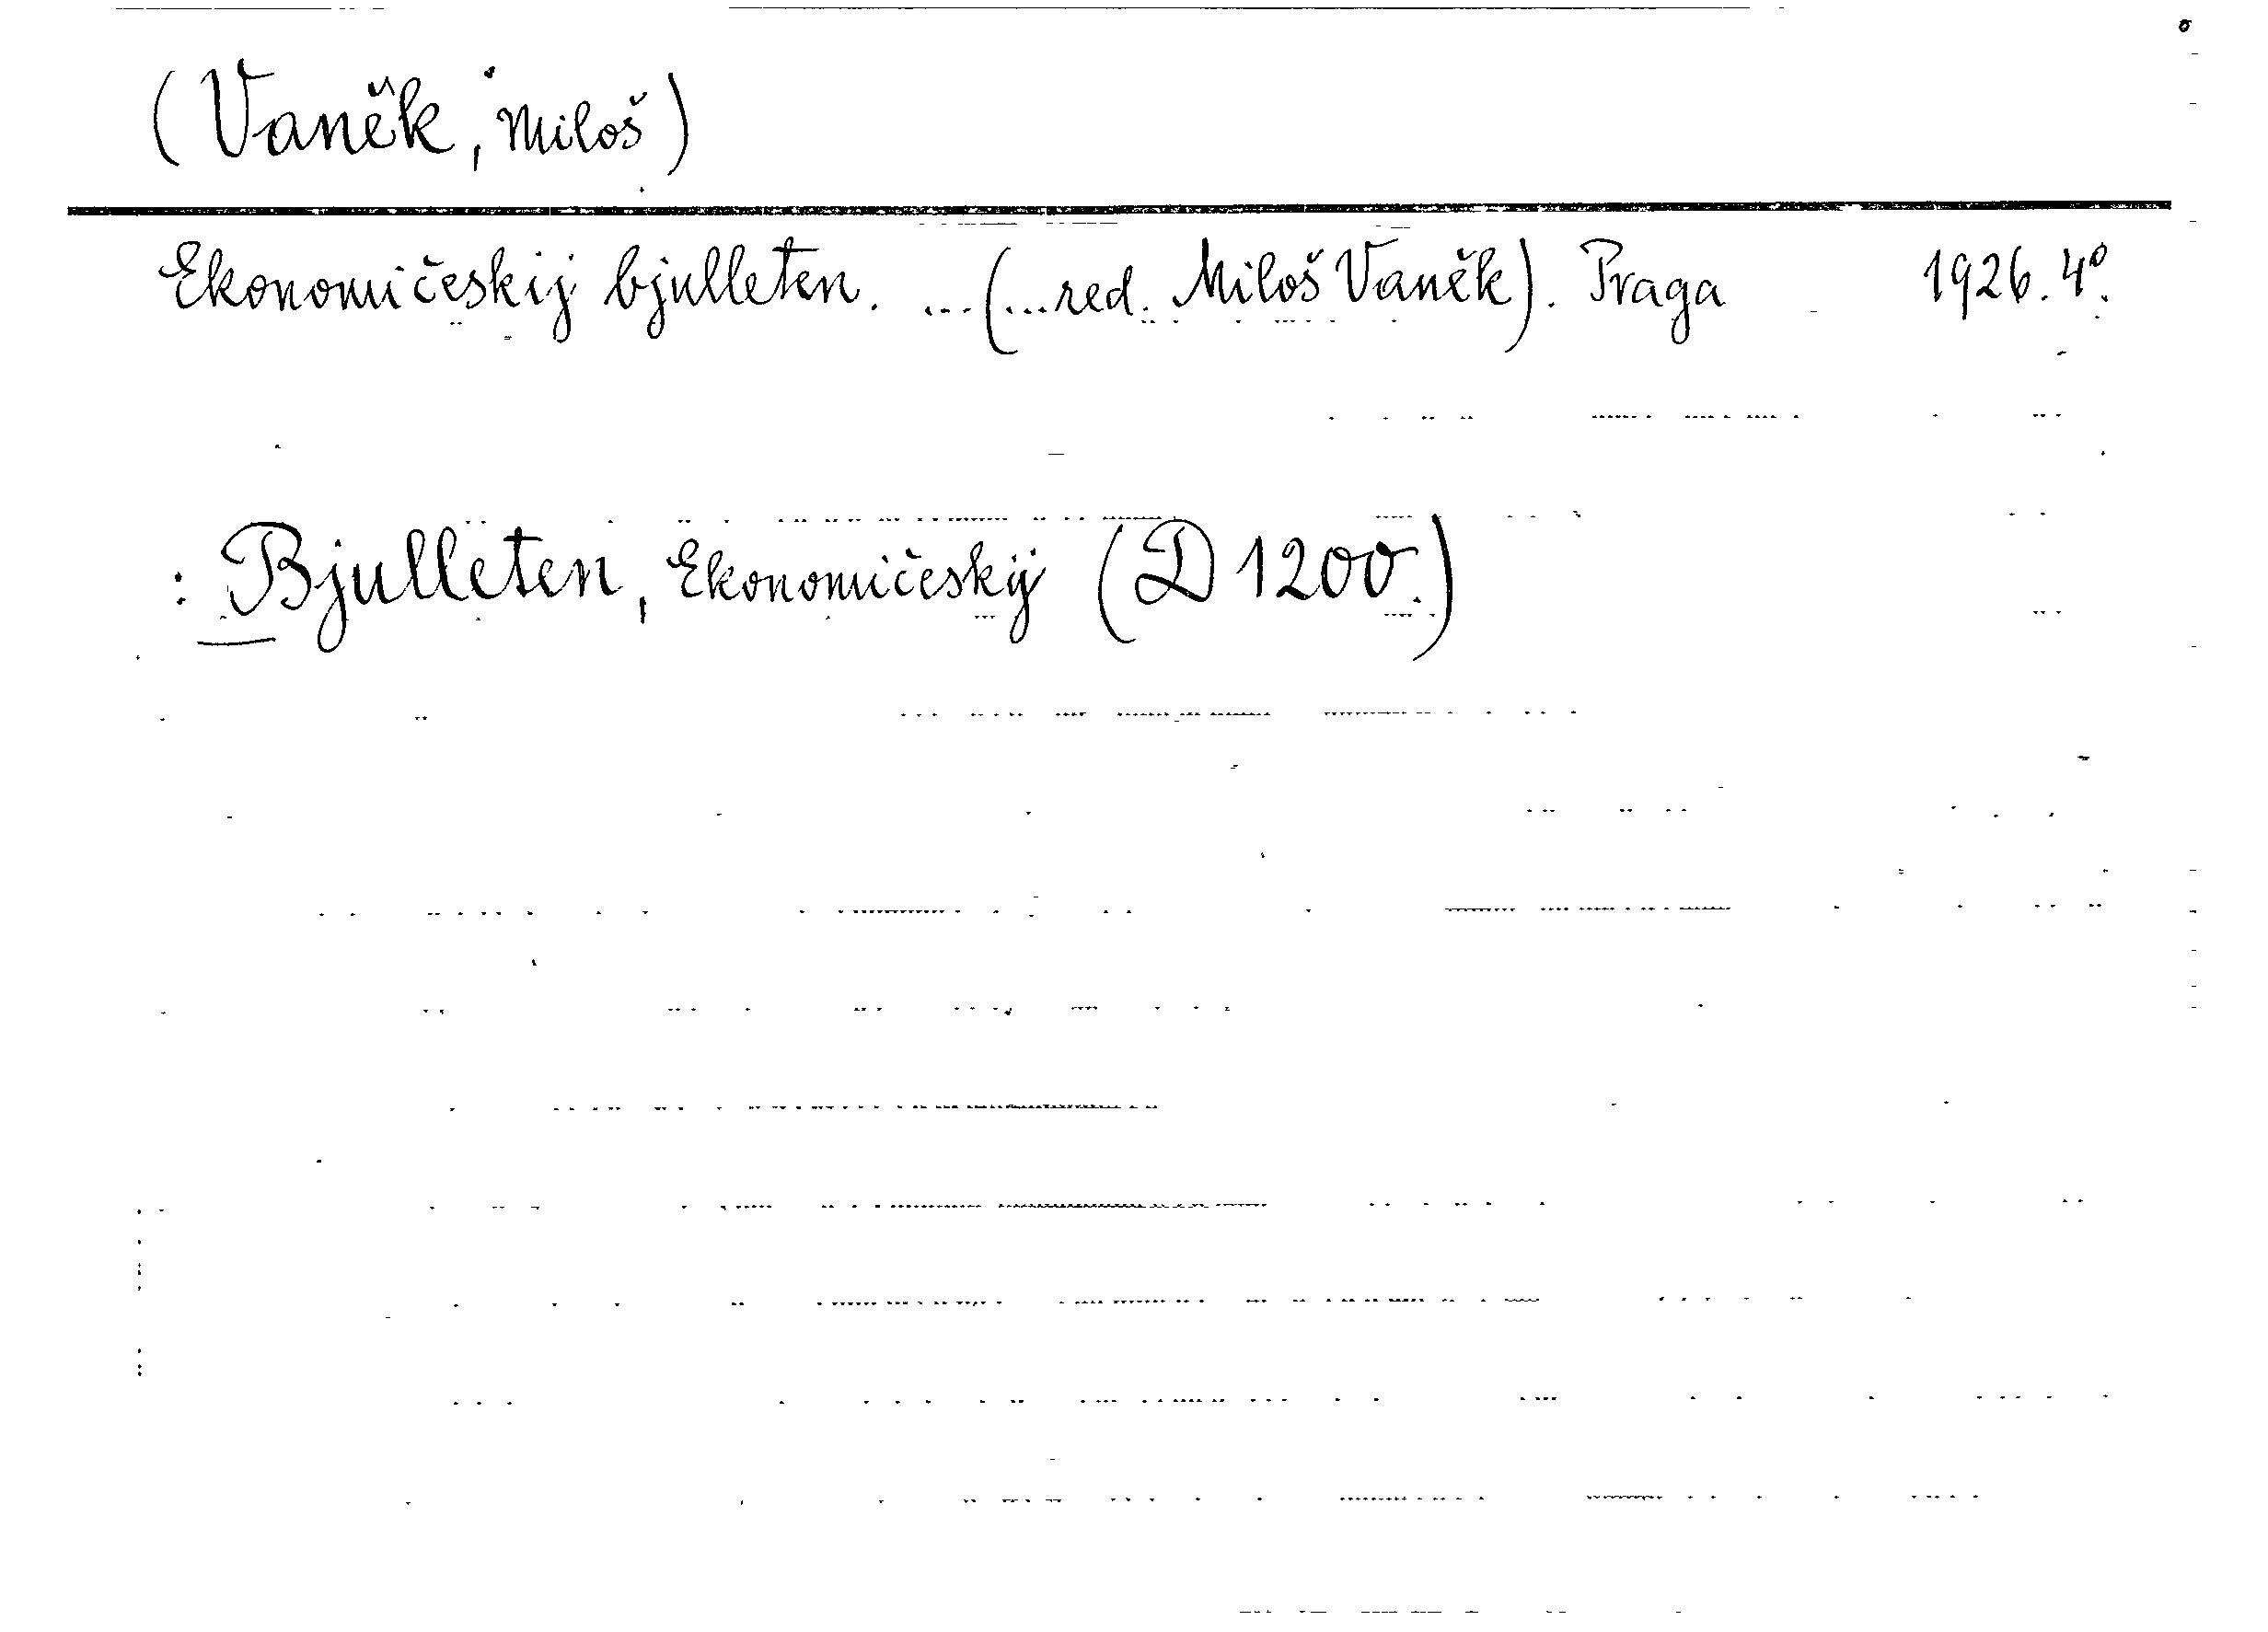 (Vaněk, Miloš)
Ekonomičeskij bjulleten. ...(...red. Miloš Vaněk). Praga 1926. 4°.
: Bjulleten, Ekonomičeskij (D 1200.)